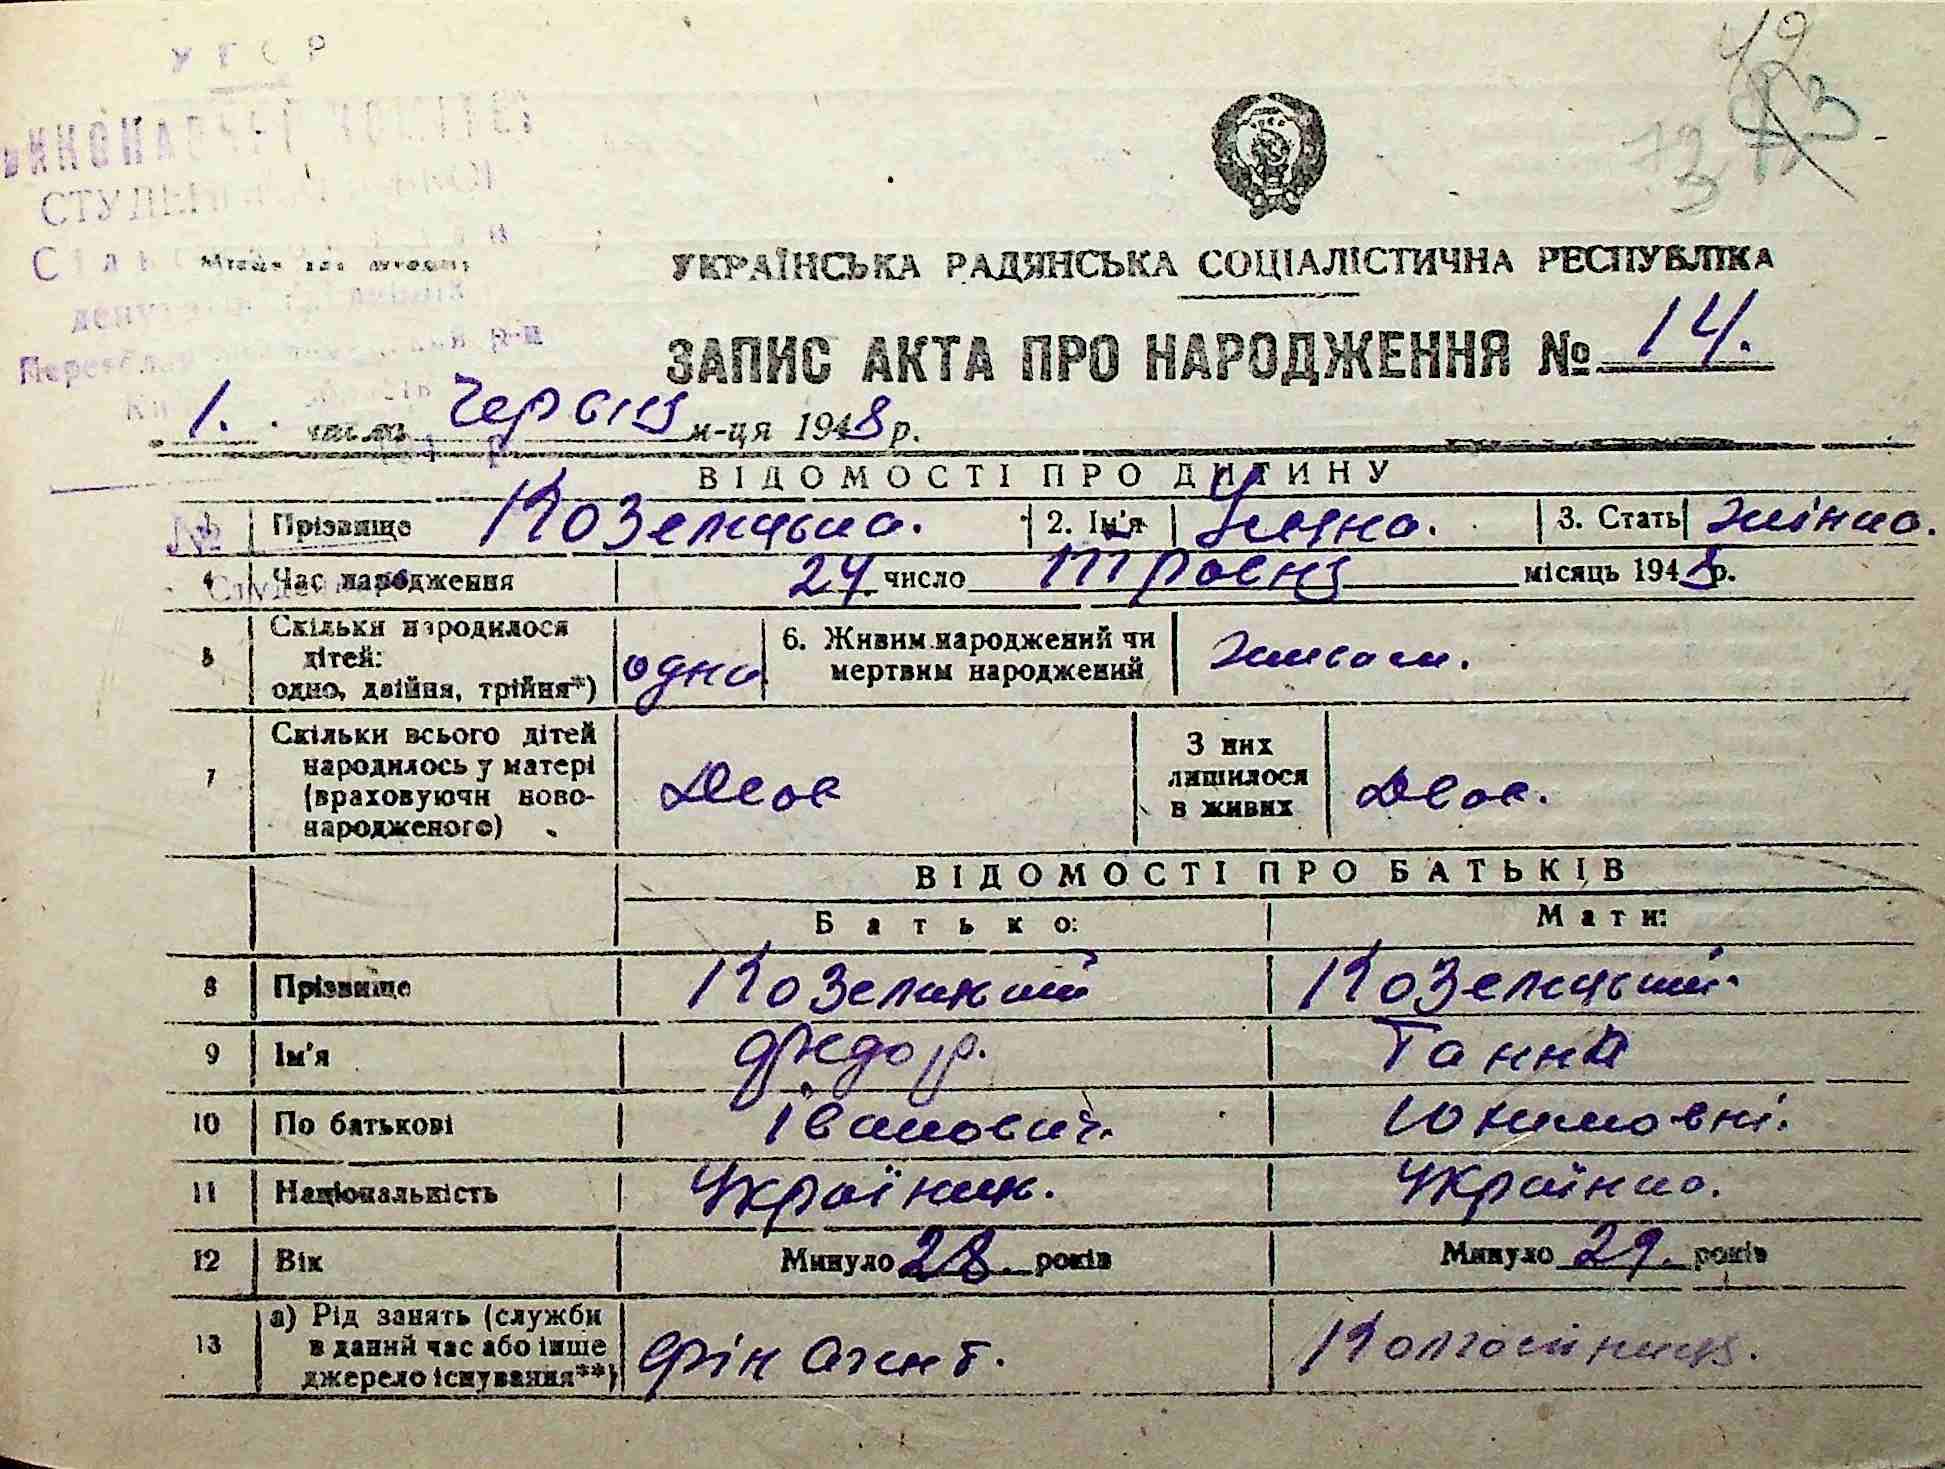 УКРАЇНСЬКА РАДЯНСЬКА СОЦІАЛІСТИЧНА РЕСПУБЛІКА
ЗАПИС АКТА ПРО НАРОДЖЕННЯ № 14.
1. числа Червня м-ця 1948 р.
ВІДОМОСТІ ПРО ДИТИНУ
1 Прізвище Козелцька. 2. Ім'я 3. Стать жінка.
4 Час народження 24 число Травня місяць 1948 р.
5 Скільки народилося дітей: одно, двійня, трійня*) одна 6. Живим народжений чи мертвим народжений живим.
7 Скільки всього дітей народилось у матері (враховуючи новонародженого) Двое З них лишилося в живих Двое.
ВІДОМОСТІ ПРО БАТЬКІВ
Батько: Мати:
8 Прізвище Козелцький Козелцький
9 Ім'я Федор. Ганна
10 По батькові Іванович. Юхимовні.
11 Національність Україник. Українка.
12 Вік Минуло 28. років Минуло 29. років
13 а) Рід занять (служби в даний час або інше джерело існування**) Фін агент. Колгоспниця.